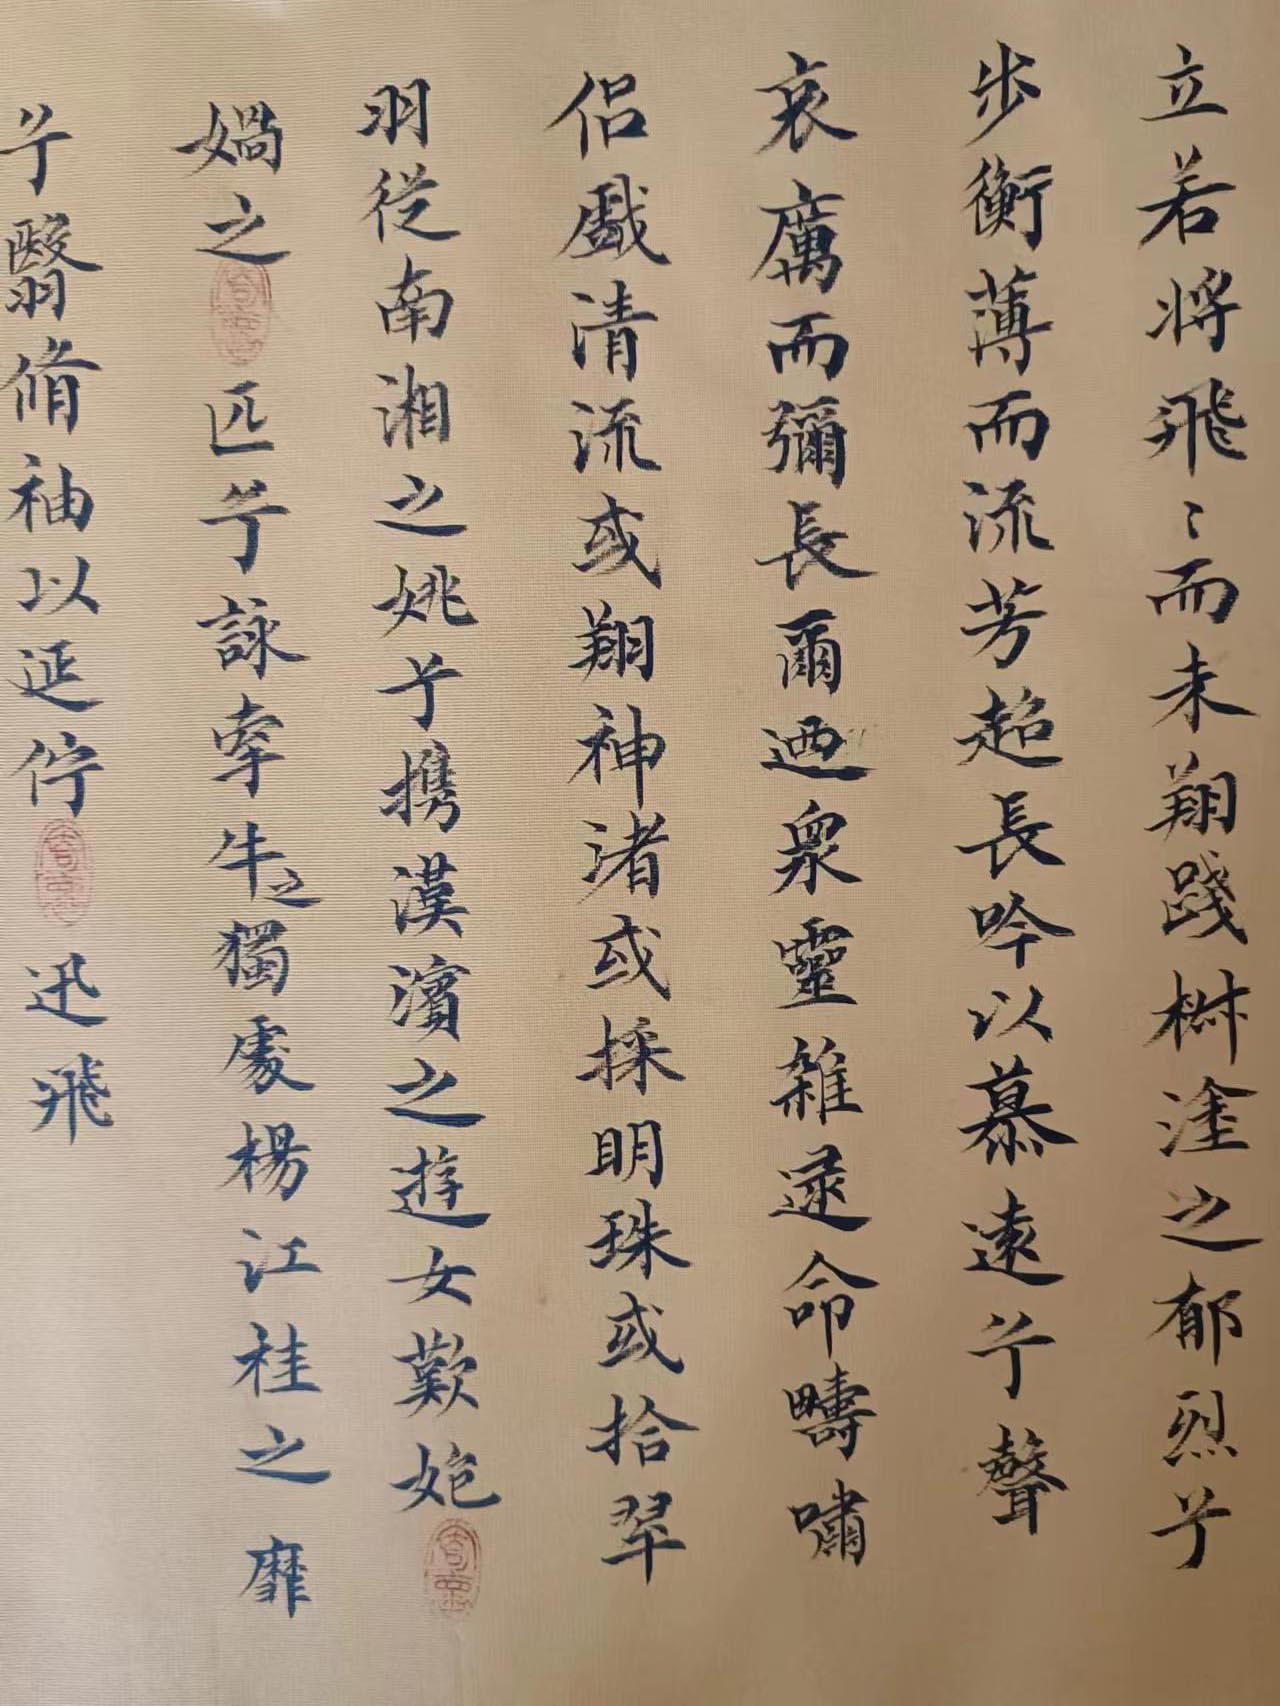 立若将飛〻而未翔踐椒塗之郁烈兮
步衡薄而流芳超長吟以慕遠兮聲
哀厲而彌長爾迺衆靈雜遝命疇嘯
侶戲清流或翔神渚或採明珠或拾翠
羽從南湘之姚兮携漢濱之遊女歎
媧之匹兮詠牽牛之獨處楊江桂之靡
兮翳脩袖以延佇迅飛